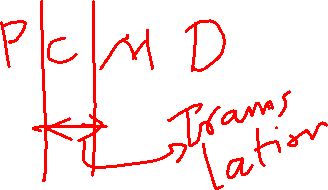 P C M D
Trans
lation